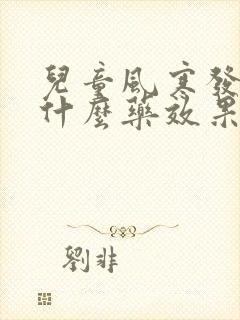 兒童風寒發
什麼藥效果
劉非